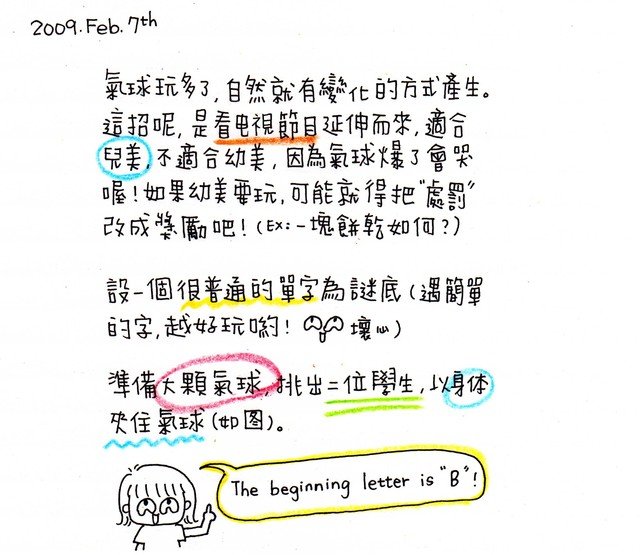 2009.Feb.7th
氣球玩多了,自然就有變化的方式產生。
這招呢,是看电視節目延伸而來,適合
兒美,不適合幼美,因為氣球爆了會哭
喔!如果幼美要玩,可能就得把"處罰"
改成獎勵吧!(Ex:一塊餅乾如何?)
設一個很普通的單字為謎底(過簡單
的字,越好玩喲! 壞心)
準備大顆氣球,挑出二位學生,以身体
夾住氣球(如图)。
The beginning letter is "B"!